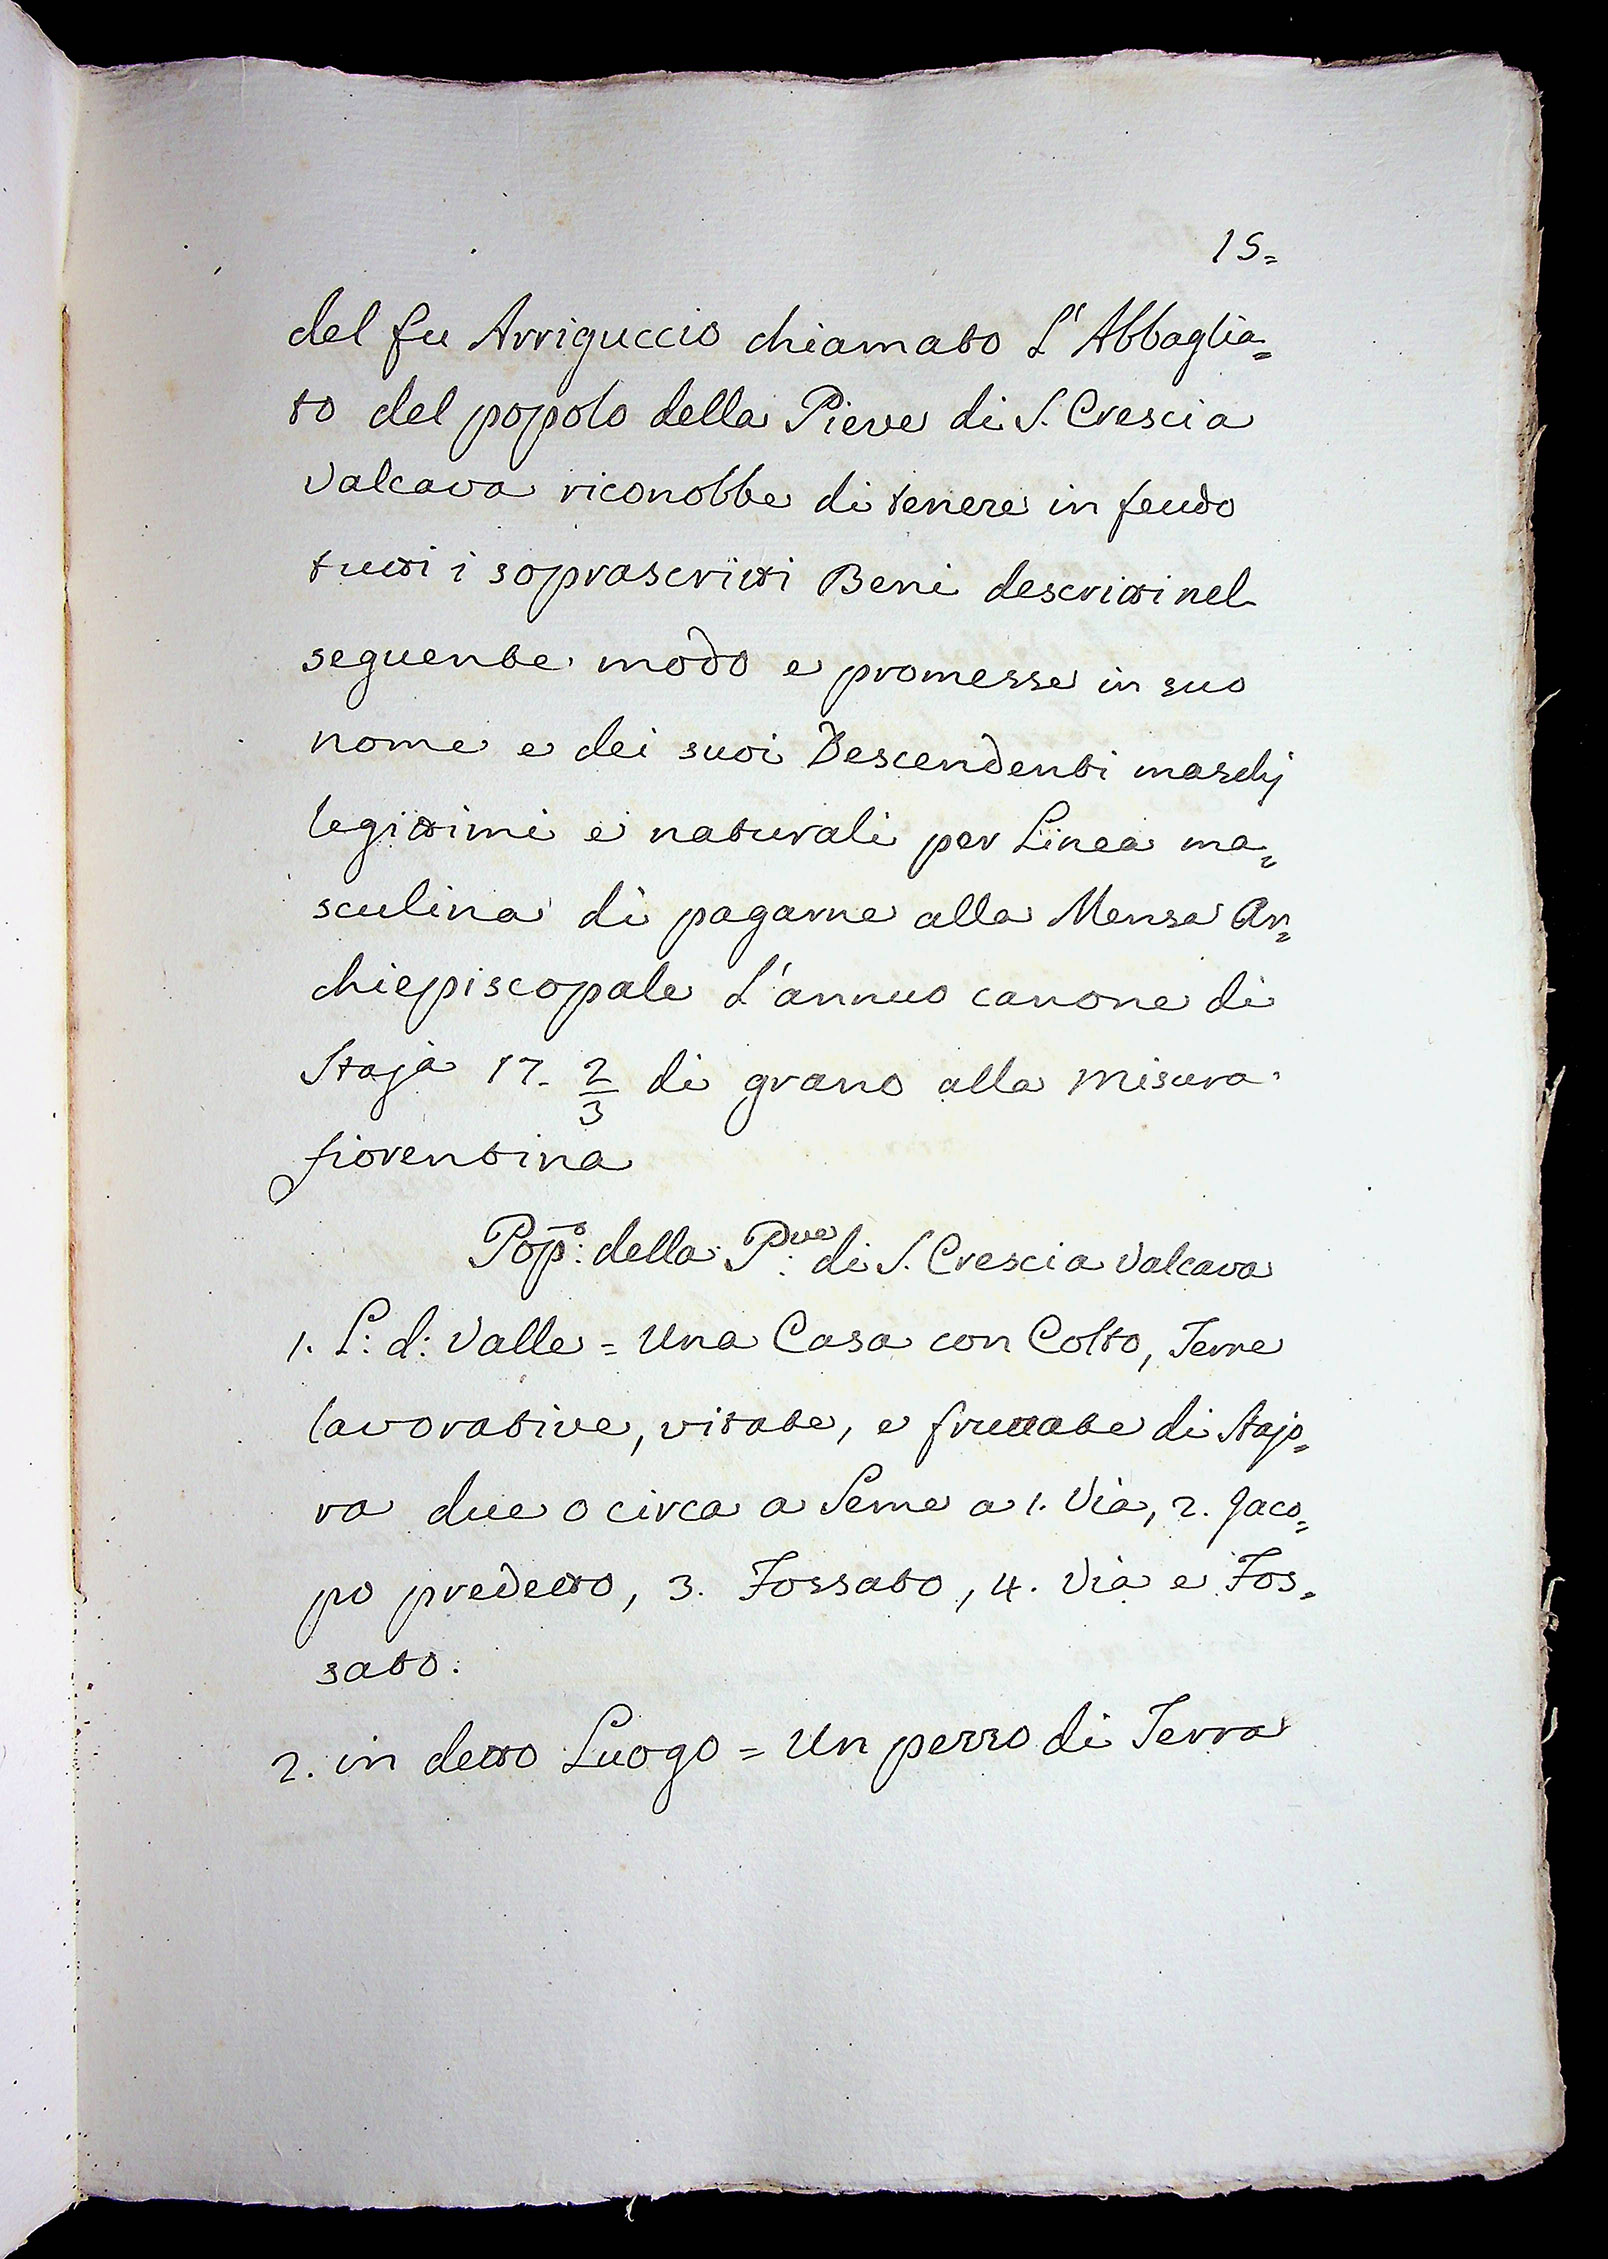 15=
del fu Arriguccio chiamato L'Abbaglia=
to del popolo della Pieve di S. Crescia
Valcava riconobbe di tenere in feudo
tutti i soprascritti Beni descritti nel
seguente modo e promesse in suo
nome e dei suoi Descendenti maschj
legittimi e naturali per Linea ma=
sculina di pagarne alla Mensa Ar=
chiepiscopale L'annuo canone di
Staja 17. 2/3 di grano alla misura
fiorentina
Pop.o: della P.ve: di S. Crescia Valcava
1. L: d: Valle = Una Casa con Colto, Terre
lavorative, vitate, e fruttate di Stajo=
ra due o circa a Seme a 1. Via, 2. Jaco=
po predetto, 3. Fossato, 4. Via e Fos=
sato.
2. in detto Luogo = Un pezzo di Terra